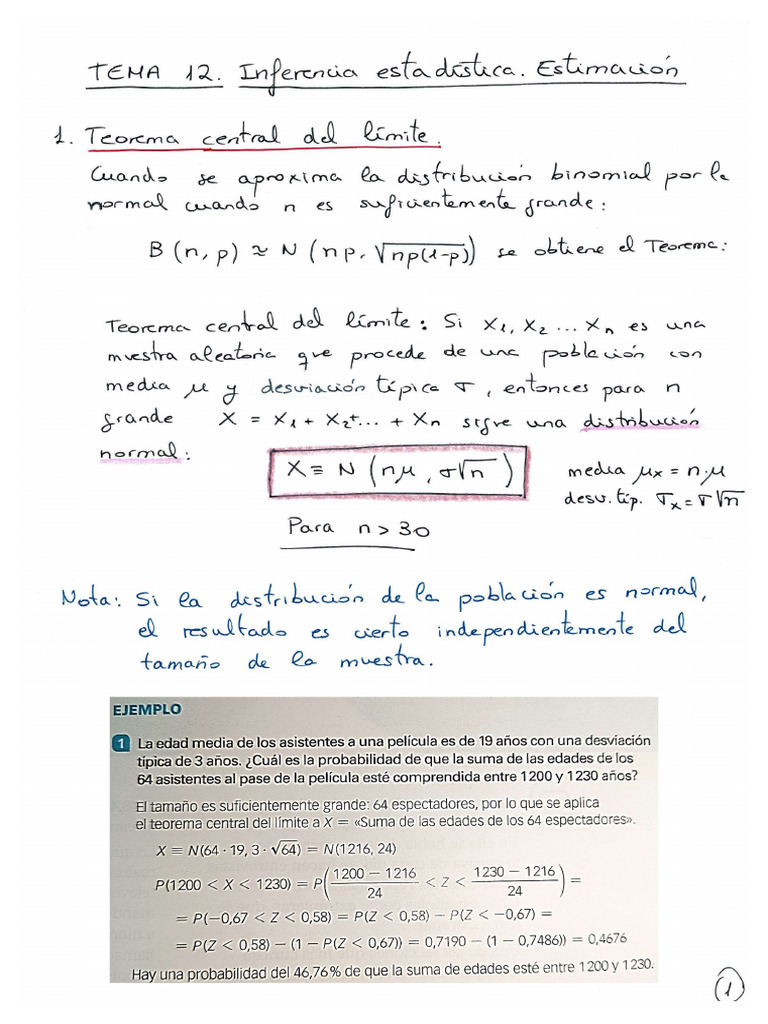 TEMA 12. Inferencia estadística. Estimación
1. Teorema central del límite.
Cuando se aproxima la distribución binomial por la
normal cuando n es suficientemente grande:
B(n,p) ≈ N(np, √np(1-p)) se obtiene el Teorema:
Teorema central del límite: Si X₁, X₂ ... Xₙ es una
muestra aleatoria que procede de una población con
media μ y desviación típica σ, entonces para n
grande X = X₁ + X₂ + ... + Xₙ sigue una distribución
normal: X ≡ N(nμ, σ√n) media μₓ = n·μ
desv. típ. σₓ = σ√n
Para n > 30
Nota: Si la distribución de la población es normal,
el resultado es cierto independientemente del
tamaño de la muestra.
EJEMPLO
1 La edad media de los asistentes a una película es de 19 años con una desviación
típica de 3 años. ¿Cuál es la probabilidad de que la suma de las edades de los
64 asistentes al pase de la película esté comprendida entre 1200 y 1230 años?
El tamaño es suficientemente grande: 64 espectadores, por lo que se aplica
el teorema central del límite a X = «Suma de las edades de los 64 espectadores».
X ≡ N(64 · 19, 3 · √64) = N(1216, 24)
P(1200 < X < 1230) = P((1200 − 1216)/24 < Z < (1230 − 1216)/24) =
= P(−0,67 < Z < 0,58) = P(Z < 0,58) − P(Z < −0,67) =
= P(Z < 0,58) − (1 − P(Z < 0,67)) = 0,7190 − (1 − 0,7486)) = 0,4676
Hay una probabilidad del 46,76% de que la suma de edades esté entre 1200 y 1230.
1